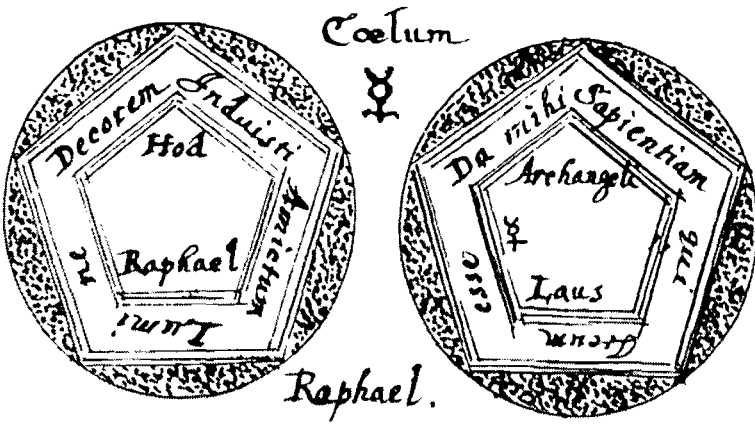 Cœlum
☿
Decorem Induisti Amictum Lumi ne
Hod
Raphael
Da mihi Sapientiam qui esse
Archangeli
☿
Laus
Raphael.